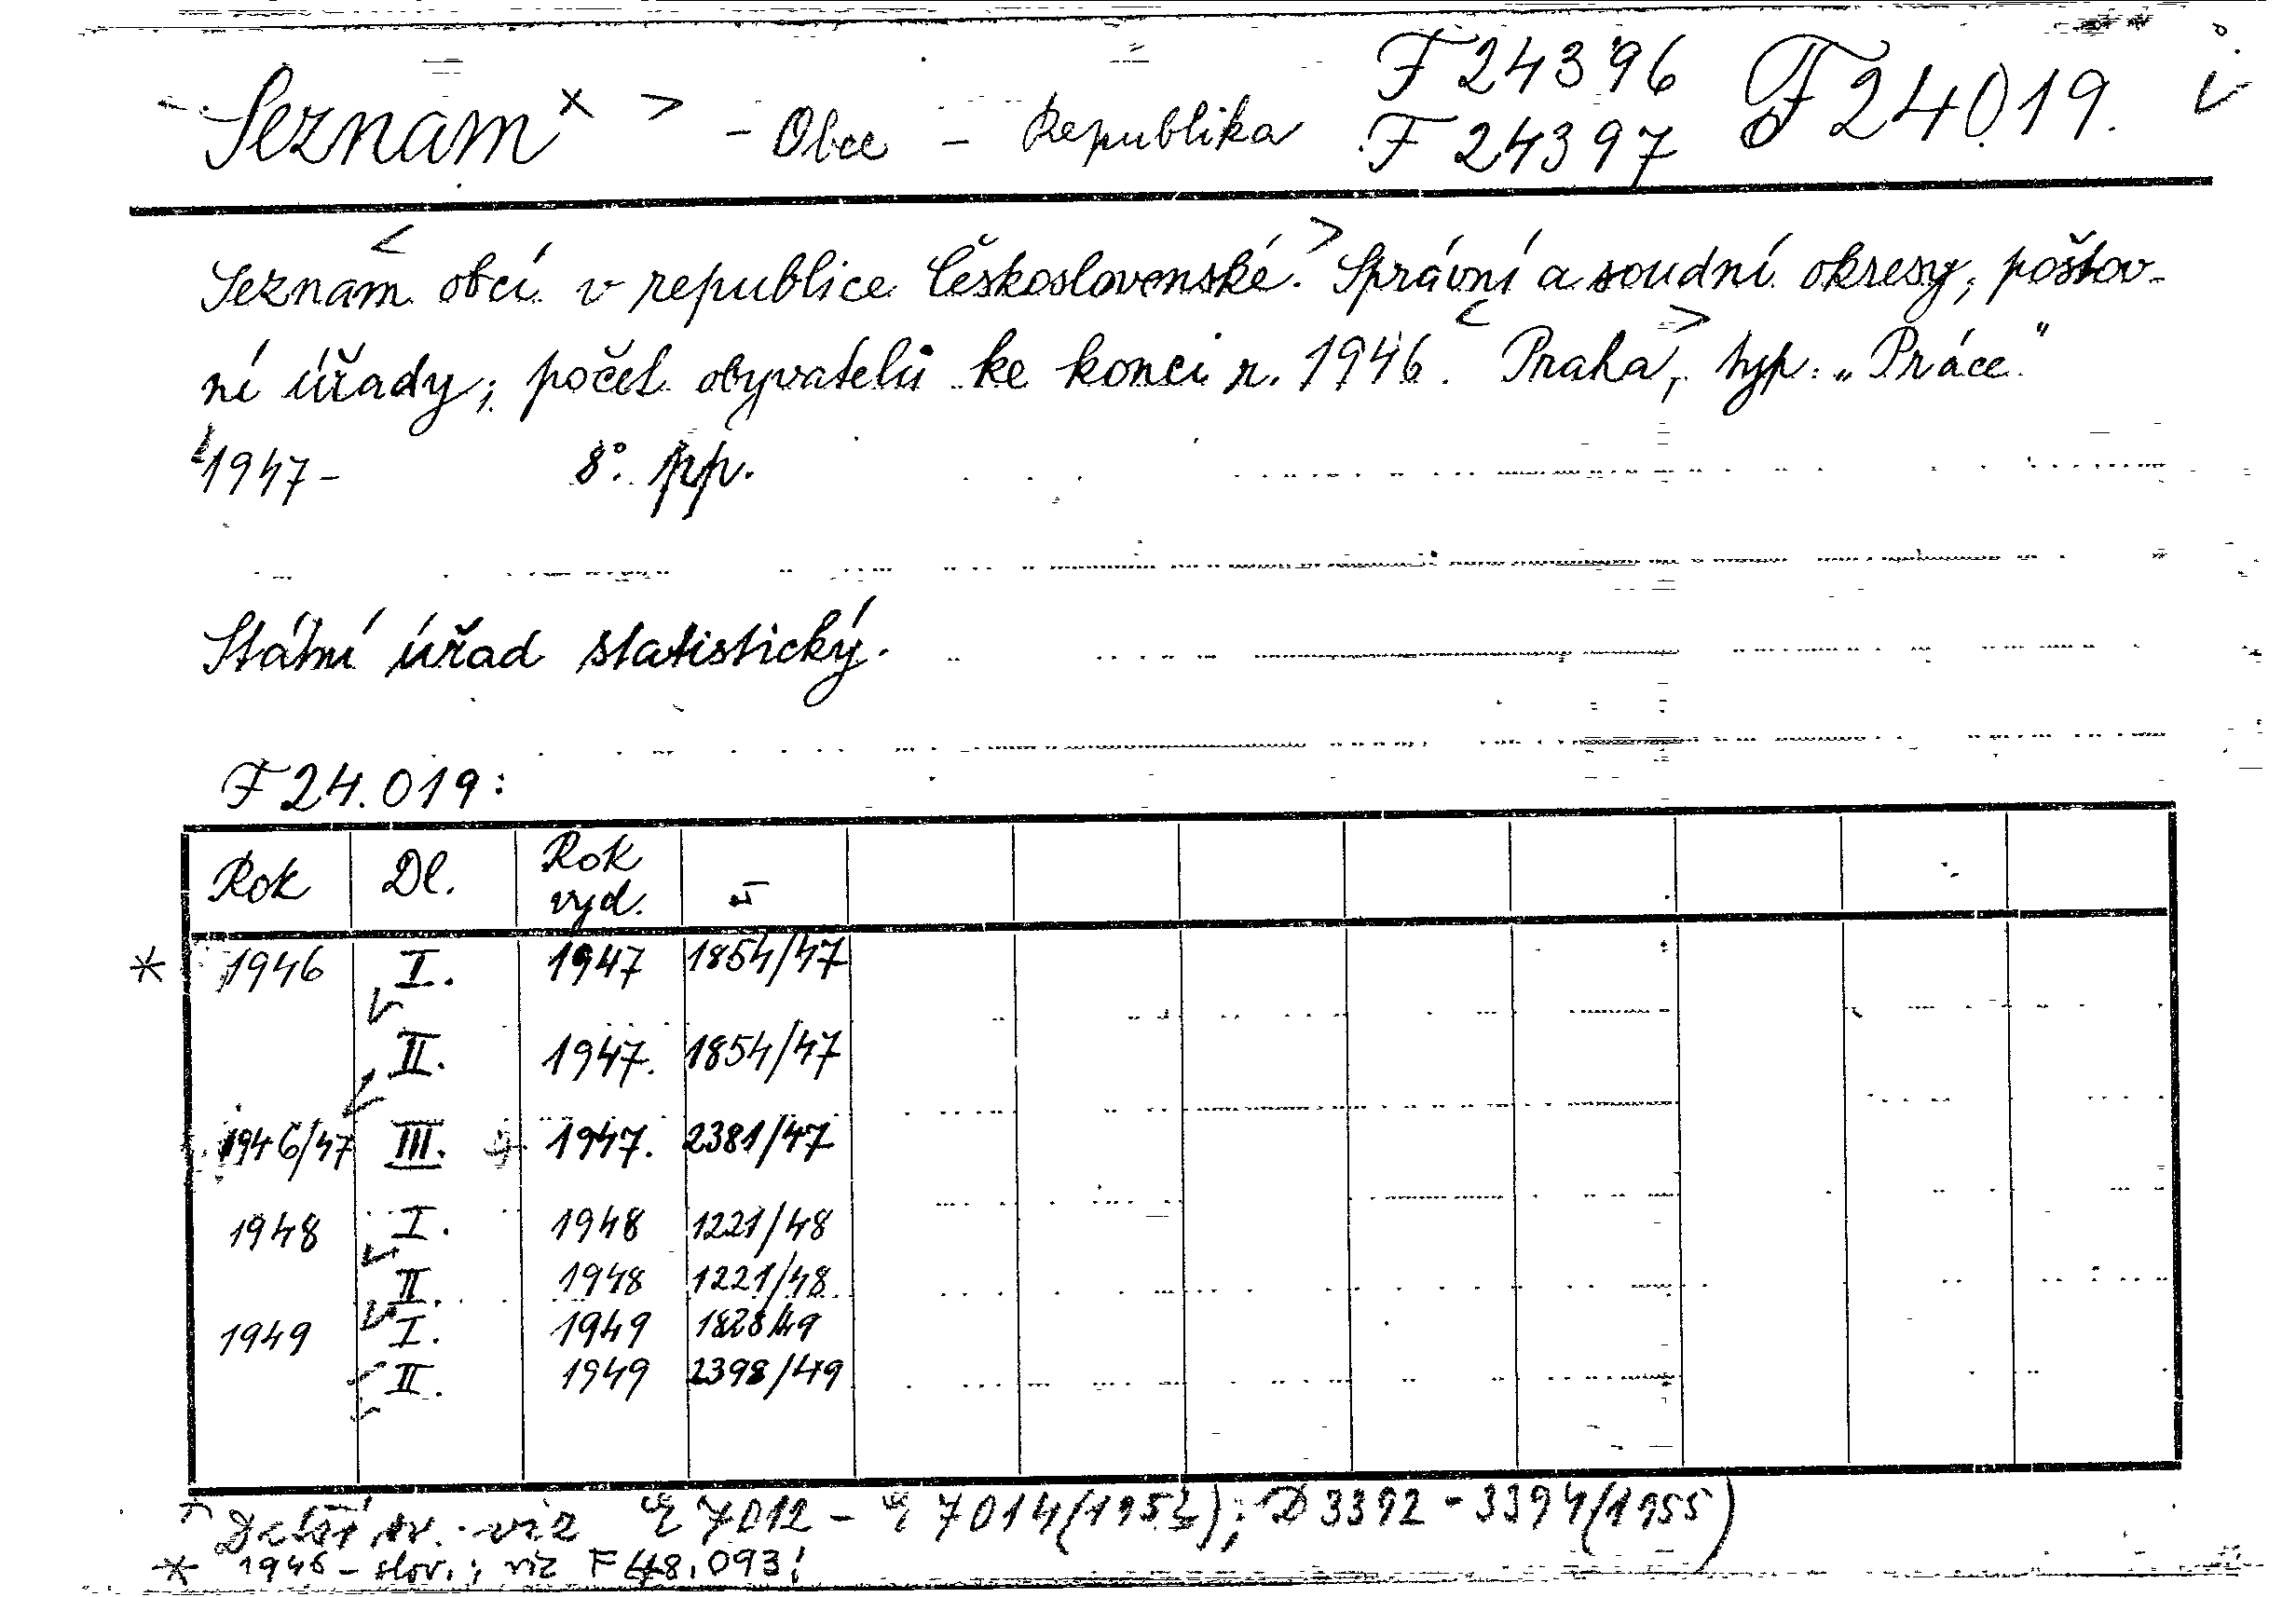 Seznam x > - Obce - Republika F 24396 F 24019.
F 24397
Seznam obcí v republice Československé. Správní a soudní okresy, poštov-
ní úřady, počet obyvatelů ke konci r. 1946. Praha, typ. „Práce"
1947- 8°. pp.
Státní úřad statistický.
F 24.019:
Rok Dl. Rok
vyd.
* 1946 I. 1947 1854/47
II. 1947. 1854/47
1946/47 III. 1947. 2381/47
1948 I. 1948 1221/48
II. 1948 1221/48
1949 I. 1949 1828/49
II. 1949 2398/49
Další sv. viz 7012 - 7014 D 3392 - 3394 (1955)
* 1946 - slov.; viz F 48.093!